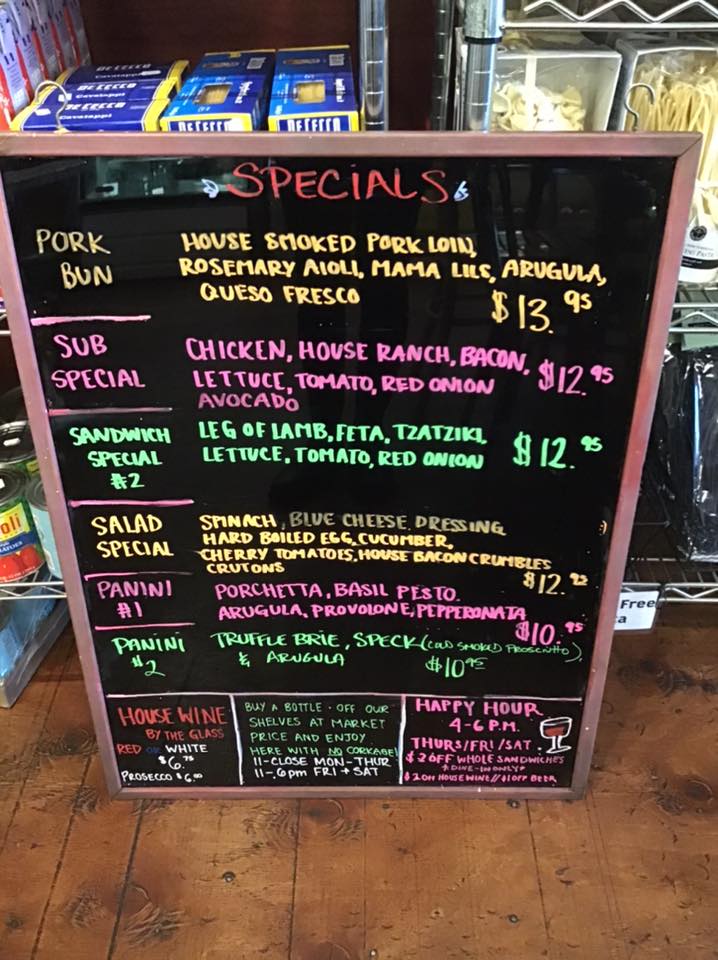 DE CECCO
Cavatappi
DE CECCO
Cavatappi
DE CECCO
DE CECCO
SPECIALS
PORK BUN
HOUSE SMOKED PORK LOIN,
ROSEMARY AIOLI, MAMA LILS, ARUGULA,
QUESO FRESCO
$13.95
SUB SPECIAL
CHICKEN, HOUSE RANCH, BACON,
LETTUCE, TOMATO, RED ONION
AVOCADO
$12.95
SANDWICH SPECIAL #2
LEG OF LAMB, FETA, TZATZIKI,
LETTUCE, TOMATO, RED ONION
$12.95
SALAD SPECIAL
SPINACH, BLUE CHEESE DRESSING
HARD BOILED EGG, CUCUMBER,
CHERRY TOMATOES, HOUSE BACON CRUMBLES
CRUTONS
$12.
PANINI #1
PORCHETTA, BASIL PESTO.
ARUGULA, PROVOLONE, PEPPERONATA
$10.95
PANINI #2
TRUFFLE BRIE, SPECK (COLD SMOKED PROSCIUTTO),
& ARUGULA
$10.95
HOUSE WINE
BY THE GLASS
RED OR WHITE
$6.75
PROSECCO $6.00
BUY A BOTTLE - OFF OUR
SHELVES AT MARKET
PRICE AND ENJOY
HERE WITH NO CORKAGE!
11-CLOSE MON-THUR
11-6pm FRI + SAT
HAPPY HOUR
4-6 P.M.
THURS/FRI/SAT
$2 OFF WHOLE SANDWICHES
*DINE-IN ONLY*
$2 OFF HOUSE WINE//$1 OFF BEER
Free